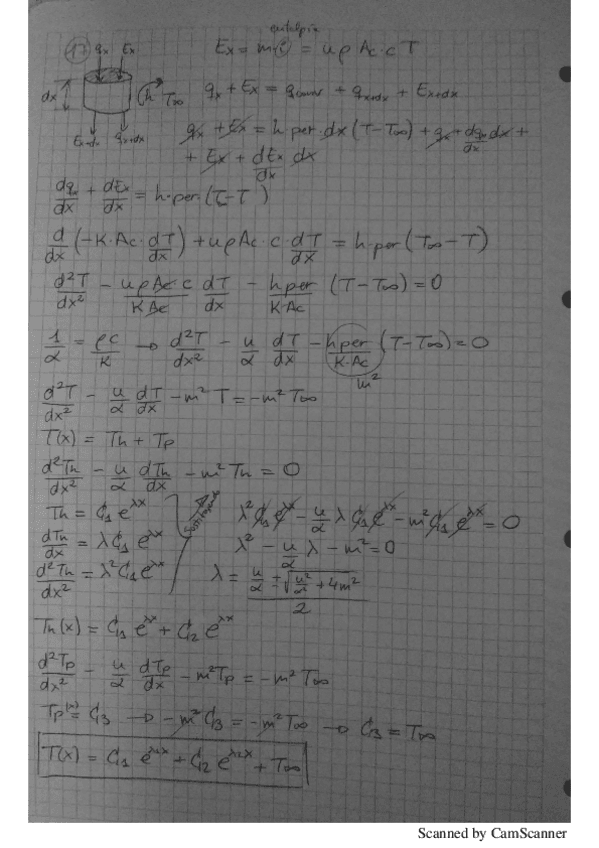 entalpía
17 qx Ex Ex = m(i) = uρAc·cT
dx h T∞ qx + Ex = qconv + qx+dx + Ex+dx
Ex+dx qx+dx qx + Ex = h per·dx (T-T∞) + qx + dqx/dx dx +
+ Ex + dEx/dx dx
dqx/dx + dEx/dx = h·per·(T-T )
d/dx (-K·Ac·dT/dx) + uρAc·c·dT/dx = h·per(T∞-T)
d²T/dx² - uρAc c/KAc dT/dx - hper/K·Ac (T-T∞) = 0
1/α = ρc/K → d²T/dx² - u/α dT/dx - hper/K·Ac (T-T∞) = 0
m²
d²T/dx² - u/α dT/dx - m²T = -m²T∞
T(x) = Th + Tp
d²Th/dx² - u/α dTh/dx - m²Th = 0
Th = C1 e^λx λ²C1e^λx - u/α λC1e^λx - m²C1e^λx = 0
dTh/dx = λC1 e^λx λ² - u/α λ - m² = 0
d²Th/dx² = λ²C1e^λx λ = (u/α ± √(u²/α² + 4m²))/2
Th(x) = C1 e^λx + C2 e^λx
d²Tp/dx² - u/α dTp/dx - m²Tp = -m²T∞
Tp(x) = C3 → -m²C3 = -m²T∞ → C3 = T∞
T(x) = C1 e^λ1x + C2 e^λ2x + T∞
Scanned by CamScanner